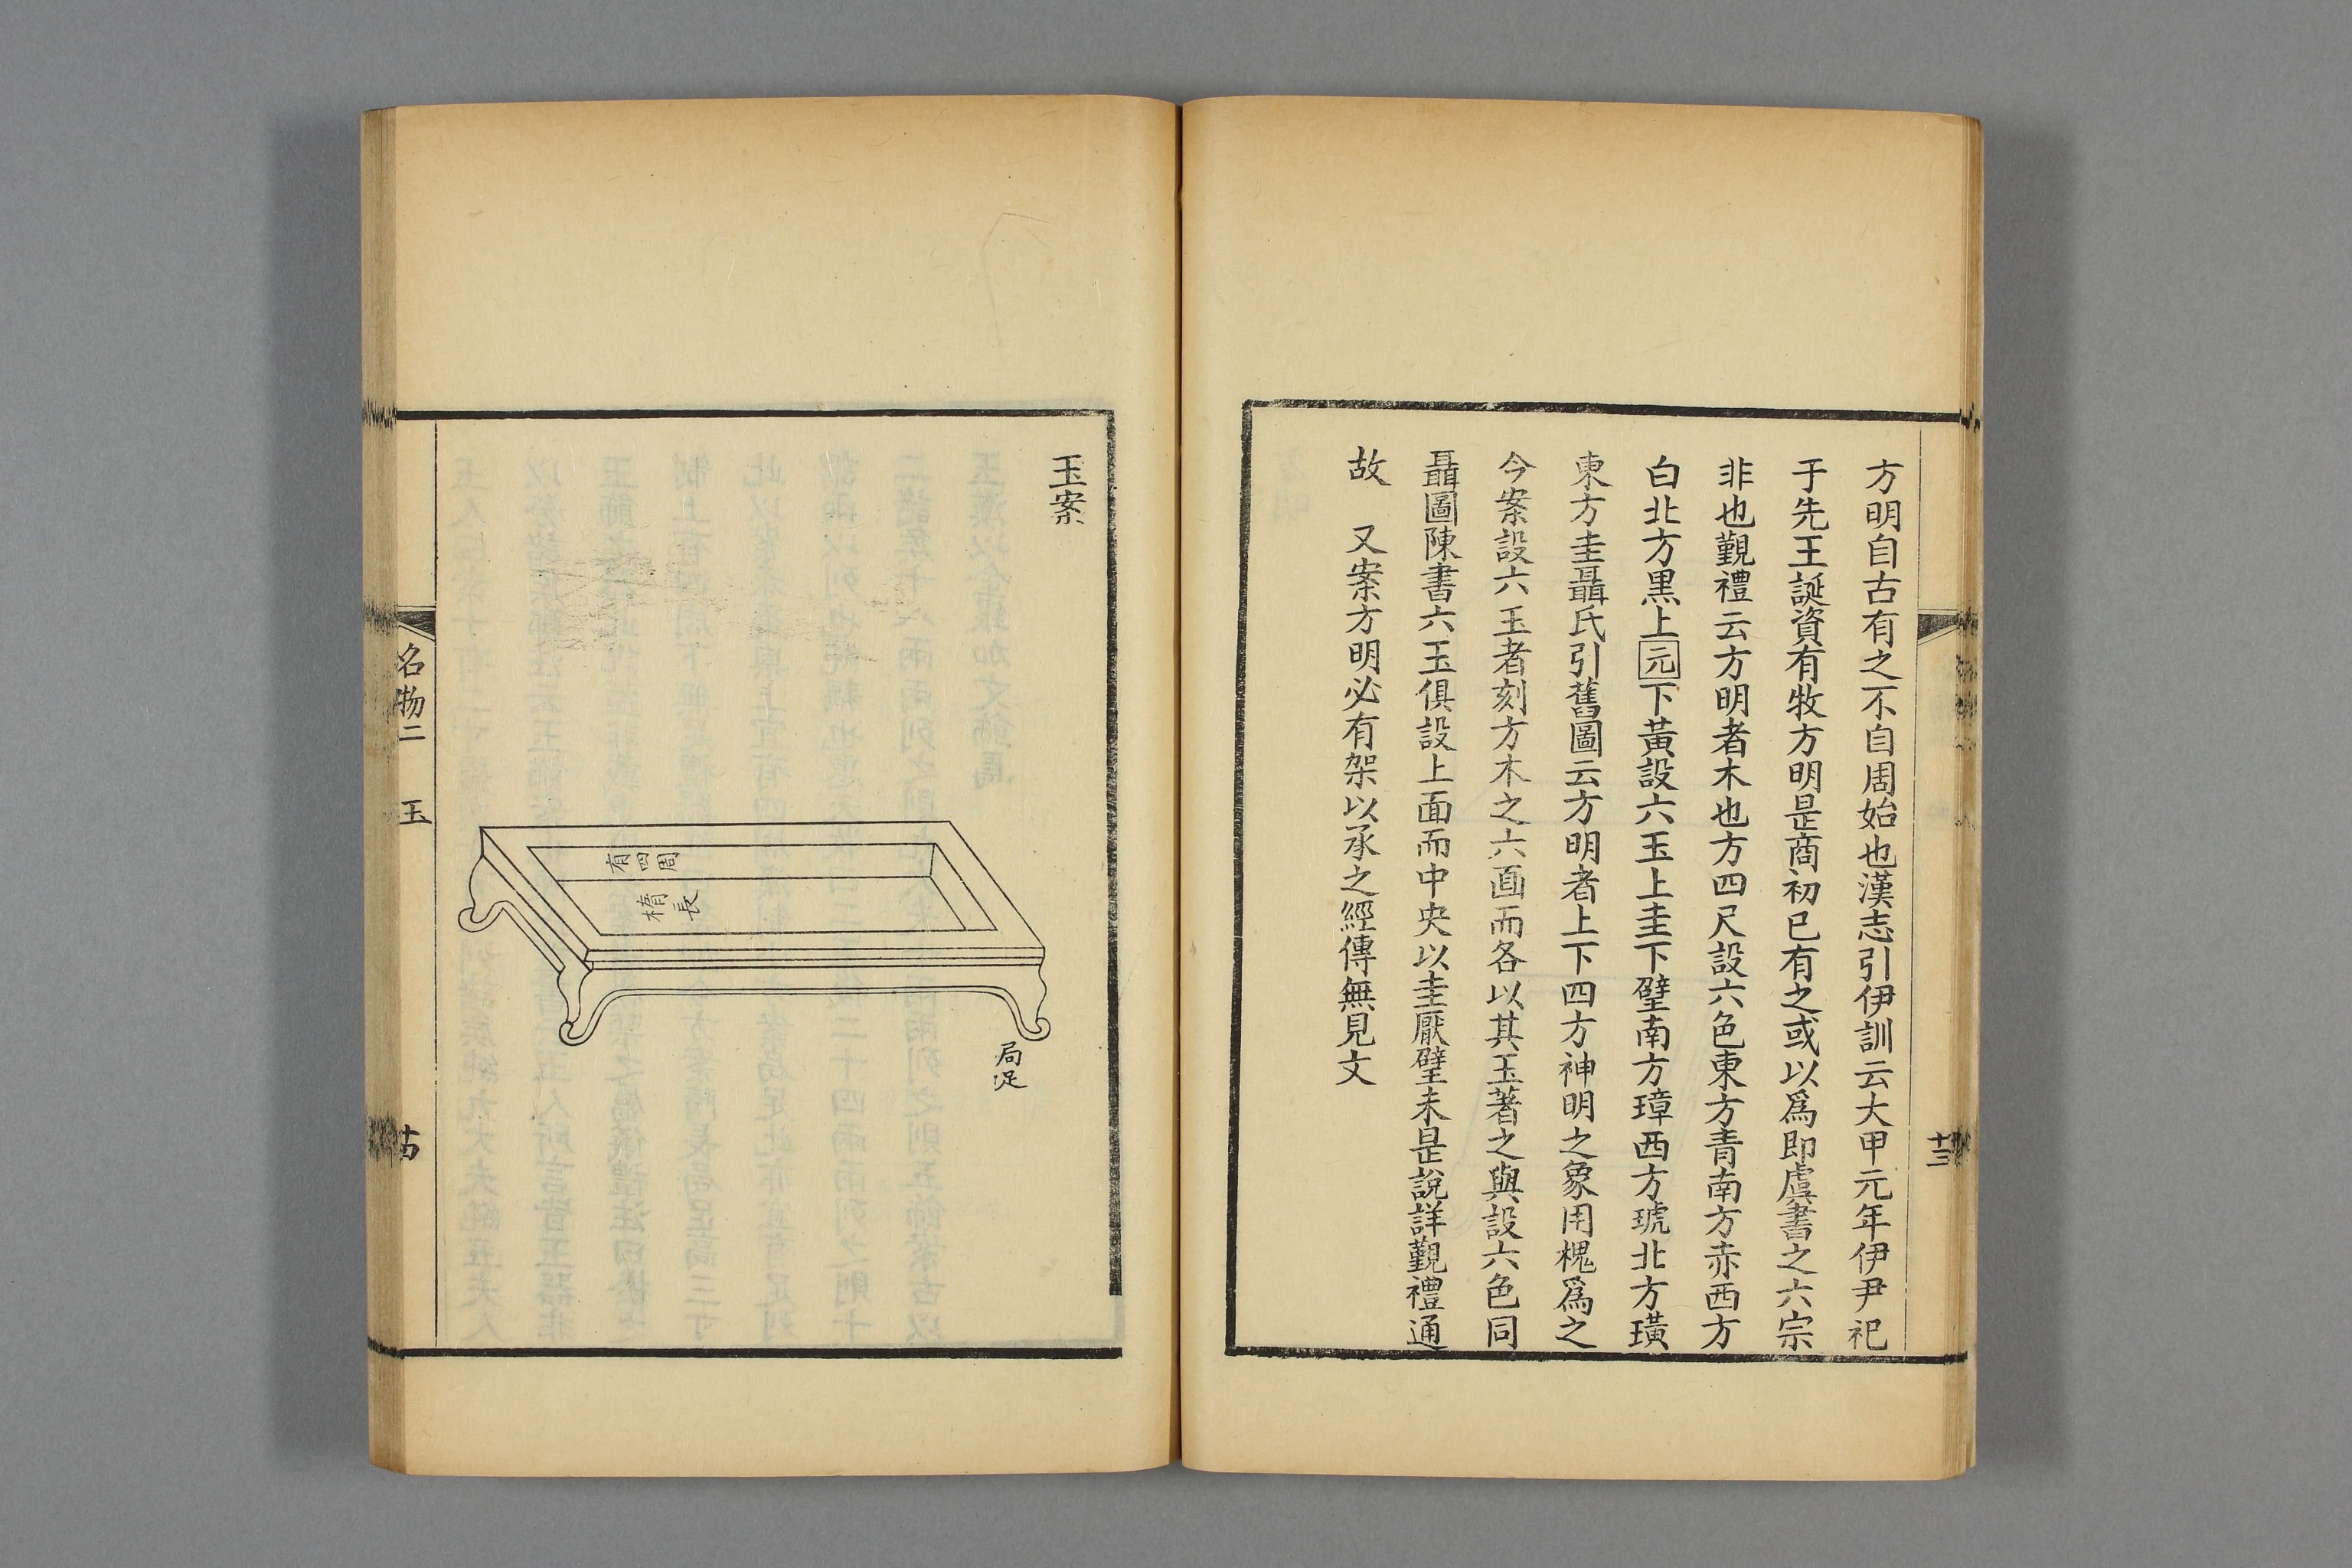 方明自古有之不自周始也漢志引伊訓云大甲元年伊尹祀
于先王誕資有牧方明是商初已有之或以爲即虞書之六宗
非也觀禮云方明者木也方四尺設六色東方青南方赤西方
白北方黒上元下黃設六玉上圭下璧南方璋西方琥北方璜
東方圭聶氏引舊圖云方明者上下四方神明之象用槐爲之
今案設六玉者刻方木之六面而各以其玉著之與設六色同
聶圖陳書六玉俱設上面而中央以圭厭璧未是說詳覲禮通
故　又案方明必有架以承之經傳無見文
十三
玉案
周
四
有
長
楕
局足
名物二　玉